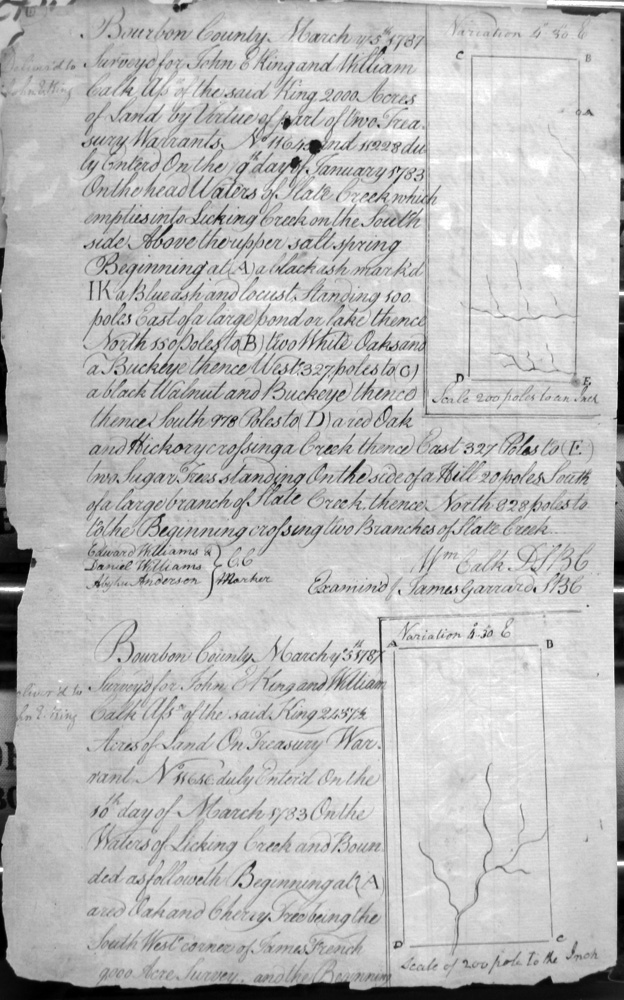 Bourbon County March ye 5th 1787
Survey'd for John E King and William
Calk Ass of the said King 2000 Acres
of Land by Virtue of part of two Trea-
sury Warrants No and 11228 du
ly Enterd On the 9th day of January 1783
On the head Waters of Slate Creek which
empties into Licking Creek on the South
side Above the upper salt spring
Beginning at (A) a black ash mark'd
IK a Blue ash and locust Standing 100
poles East of a large pond or lake thence
North 150 Poles to (B) two White Oaks and
a Buckeye thence West 327 poles to (C)
a black Walnut and Buckeye thence
thence South 978 Poles to (D) a red Oak
and Hickory crossing a Creek thence East 327 Poles to (E)
two Sugar Trees standing On the side of a Hill 20 poles South
of a large branch of Slate Creek thence North 828 poles to
to the Beginning crossing two Branches of Slate Creek
Edward Williams &
Daniel Williams } C.C
Anderson Marker
Wm Calk D.S.B.C
Examin'd James Garrard S.B.C
Deliver'd to
John E King
Variation 4°30 E
C B
A
D E
Scale 200 poles to an Inch
Bourbon County March ye 5th 1787
Survey'd for John E King and William
Calk Asse of the said King
Acres of Land On Treasury War-
rant No 11616 duly Enter'd On the
10th day of March 1783 On the
Waters of Licking Creek and Boun
ded as followeth Beginning at (A)
a red Oak and Cherry Tree being the
South West corner of James French
9000 Acre Survey, and the Beginning
Deliver'd to
John E. King
Variation 4°30 E
A B
D C
Scale of 200 pole to the Inch